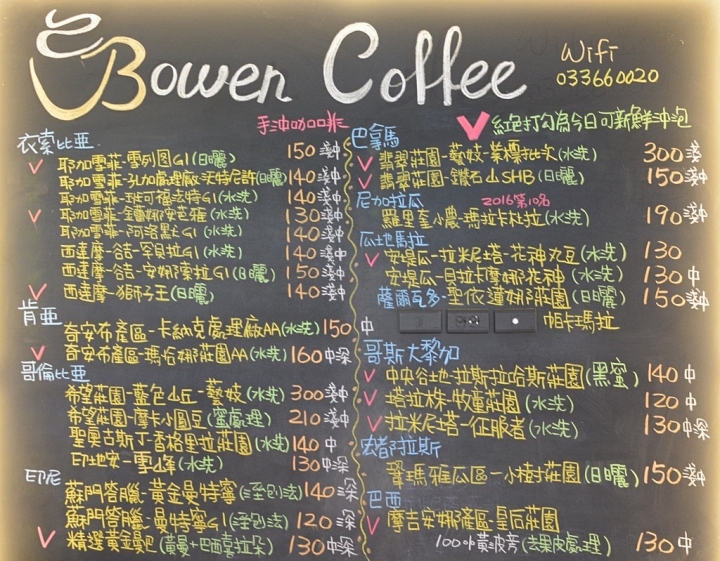 Bowen Coffee
Wifi
033660020
手沖咖啡
紅色打勾為今日可新鮮沖泡
衣索比亞
耶加雪菲-雪列圖G1(日曬) 150 淺中
耶加雪菲-孔加處理廠-沃特尼許(日曬) 140 淺中
耶加雪菲-班可福法特G1(水洗) 140 淺中
耶加雪菲-金蕾娜安老雅(水洗) 130 淺中
耶加雪菲-阿洛星式G1(水洗) 140 淺中
西達摩-谷吉-罕貝拉G1(水洗) 140 淺中
西達摩-谷吉-安娜索拉G1(日曬) 150 淺中
西達摩-獅子王(日曬) 140 淺中
肯亞
奇安布產區-卡納克處理廠AA(水洗) 150 中
奇安布產區-瑪哈娜莊園AA(水洗) 160 中深
哥倫比亞
希望莊園-藍色山丘-藝妓(水洗) 300 淺中
希望莊園-摩卡小圓豆(蜜處理) 210 淺中
聖奧古斯丁-香格里拉莊園(水洗) 140 中
印地安-雪峰(水洗) 130 中深
印尼
蘇門答臘-黃金曼特寧(溼刨法) 140 深
蘇門答臘-曼特寧G1(溼刨法) 120 深
精選黃金曼巴(黃曼+巴西喜拉朵) 130 中深
巴拿馬
翡翠莊園-藝妓-紫標批次(水洗) 300 淺
翡翠莊園-鑽石山SHB(日曬) 150 淺中
尼加拉瓜 2016第10名
羅里奎小農-瑪拉卡杜拉(水洗) 190 淺中
瓜地馬拉
安堤瓜-拉米尼塔-花神丸豆(水洗) 130
安堤瓜-貝拉卡摩娜花神(水洗) 130 中
薩爾瓦多-聖依蓮娜莊園(日曬) 150 淺中
帕卡瑪拉
哥斯大黎加
中央谷地-拉斯拉哈斯莊園(黑蜜) 140 中
塔拉珠-牧童莊園(水洗) 120 中
拉米尼塔-征服者(水洗) 130 中深
宏都拉斯
聖瑪雅瓜區-小樹莊園(日曬) 150 淺中
巴西
摩吉安娜產區-皇后莊園
100%黃波旁(去果皮處理) 130 中